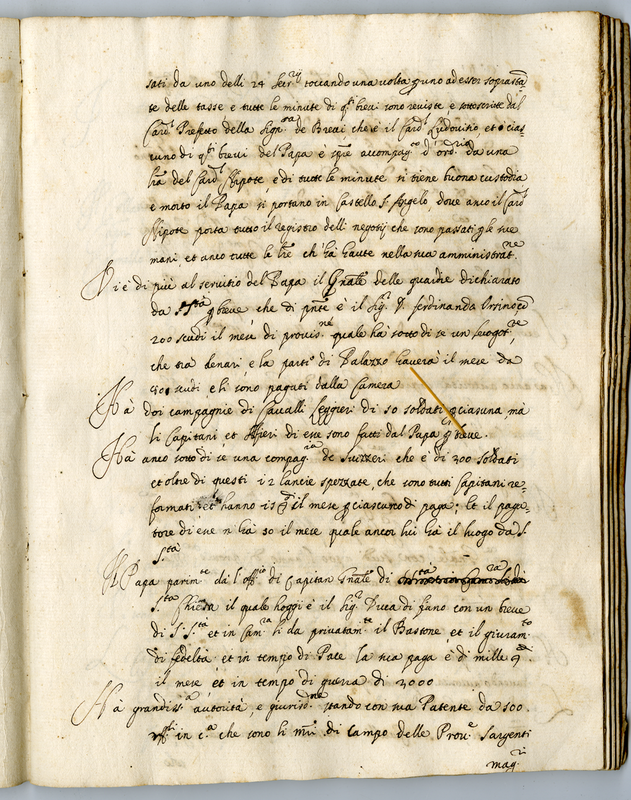 sati da uno delli 24 Secr.rij toccando una volta per uno ad esser soprasta
te delle tasse e tutte le minute di q.ti brevi sono reviste, e sottoscritte dal
Card.l Prefetto della Sign.ra de Brevi, che è il Card.l Ludovisio, et è cias
cuno di q.ti brevi del Papa è accompag.to d'ord.rio da una
lr̃a del Card.l Nipote e di tutte le minute si tiene buona custodia
e morto il Papa si portano in Castello S. Angelo, dove anco il Card.l
Nipote porta tutto il registro delli negotij che sono passati p le sue
mani et anco tutte le lr̃e ch'hà havute nella sua amministrat.ne
Vi è di più al servitio del Papa il Gñale delle guardie dichiarato
da S. S.tà p breve, che di pñte è il Sig.r D. Ferdinando Ursino, cõ
200 scudi il mese di provis.ne quale hà sotto di se un luogot.te
che tra denari e la parte di Palazzo haverà il mese da
scudi e li sono pagati dalla Camera
Hà doi compagnie di Cavalli leggieri di 50 soldati p ciasuna mà
li Capitani et Alfieri di esse sono fatti dal Papa p breve.
Hà anco sotto di se una compag.nia de Suizzeri che è di 300 soldati
et oltre di questi 12 lancie spezzate, che sono tutti Capitani re=
formati et hanno il mese p ciascuno di paga; et il paga=
tore di esse n hà 30 il mese quale ancor lui hà il luogo da S.
S.tà
Il Papa parim.te dà l'off.io di Capitan Gñale di
S.ta Chiesa il quale hoggi è il Sig.r Duca di fiano con un breve
di S. S.tà et in Cam.ra li da privatam.te il Bastone, et il giuram.to
di fedeltà, et in tempo di Pace la sua paga è di mille
il mese, et in tempo di guerra di 3000
Hà grandiss.a autorità, e giurisd.ne stando con sua Patente da 500
off.li in c.a che sono li di campo delle Prov.e Sargenti
mag.ri